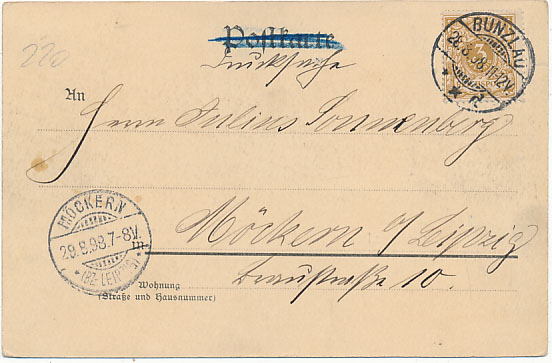 220
Postkarte
Drucksache
BUNZLAU
28.8.98.11-12V.
3
An
Herrn Julius Sonnenberg
MÖCKERN
29.8.98.7-8V.
m.
* (BZ. LEIPZIG) *
Möckern a/Leipzig
Braustraße 10.
Wohnung
(Straße und Hausnummer)